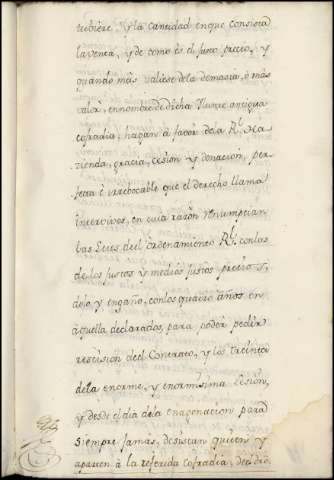 tubiere, y la cantidad enque consista
la venta, y de como es el justo precio, y
quando mas valiese dela demasia, ó mas
valor, en nombre de dicha Nueva antigua
cofradia, hagan á favor dela Rl. Ha-
zienda, gracia, cesion y donacion, per-
fecta é irrebocable que el derecho llama
intervivos, en cuia razon renumpcian
las Leies del ordenamiento Rl. con las
de los justos y medios justos precios,
dolo y engaño, con los quatro años en
aquella declarados, para poder pedir
rescision del Contrato, y las treinta
dela enorme, y enormisima Lesion,
y desde el dia dela enagenacion para
siempre jamas, desistan quiten y
aparten á la referida Cofradia, de el dro.